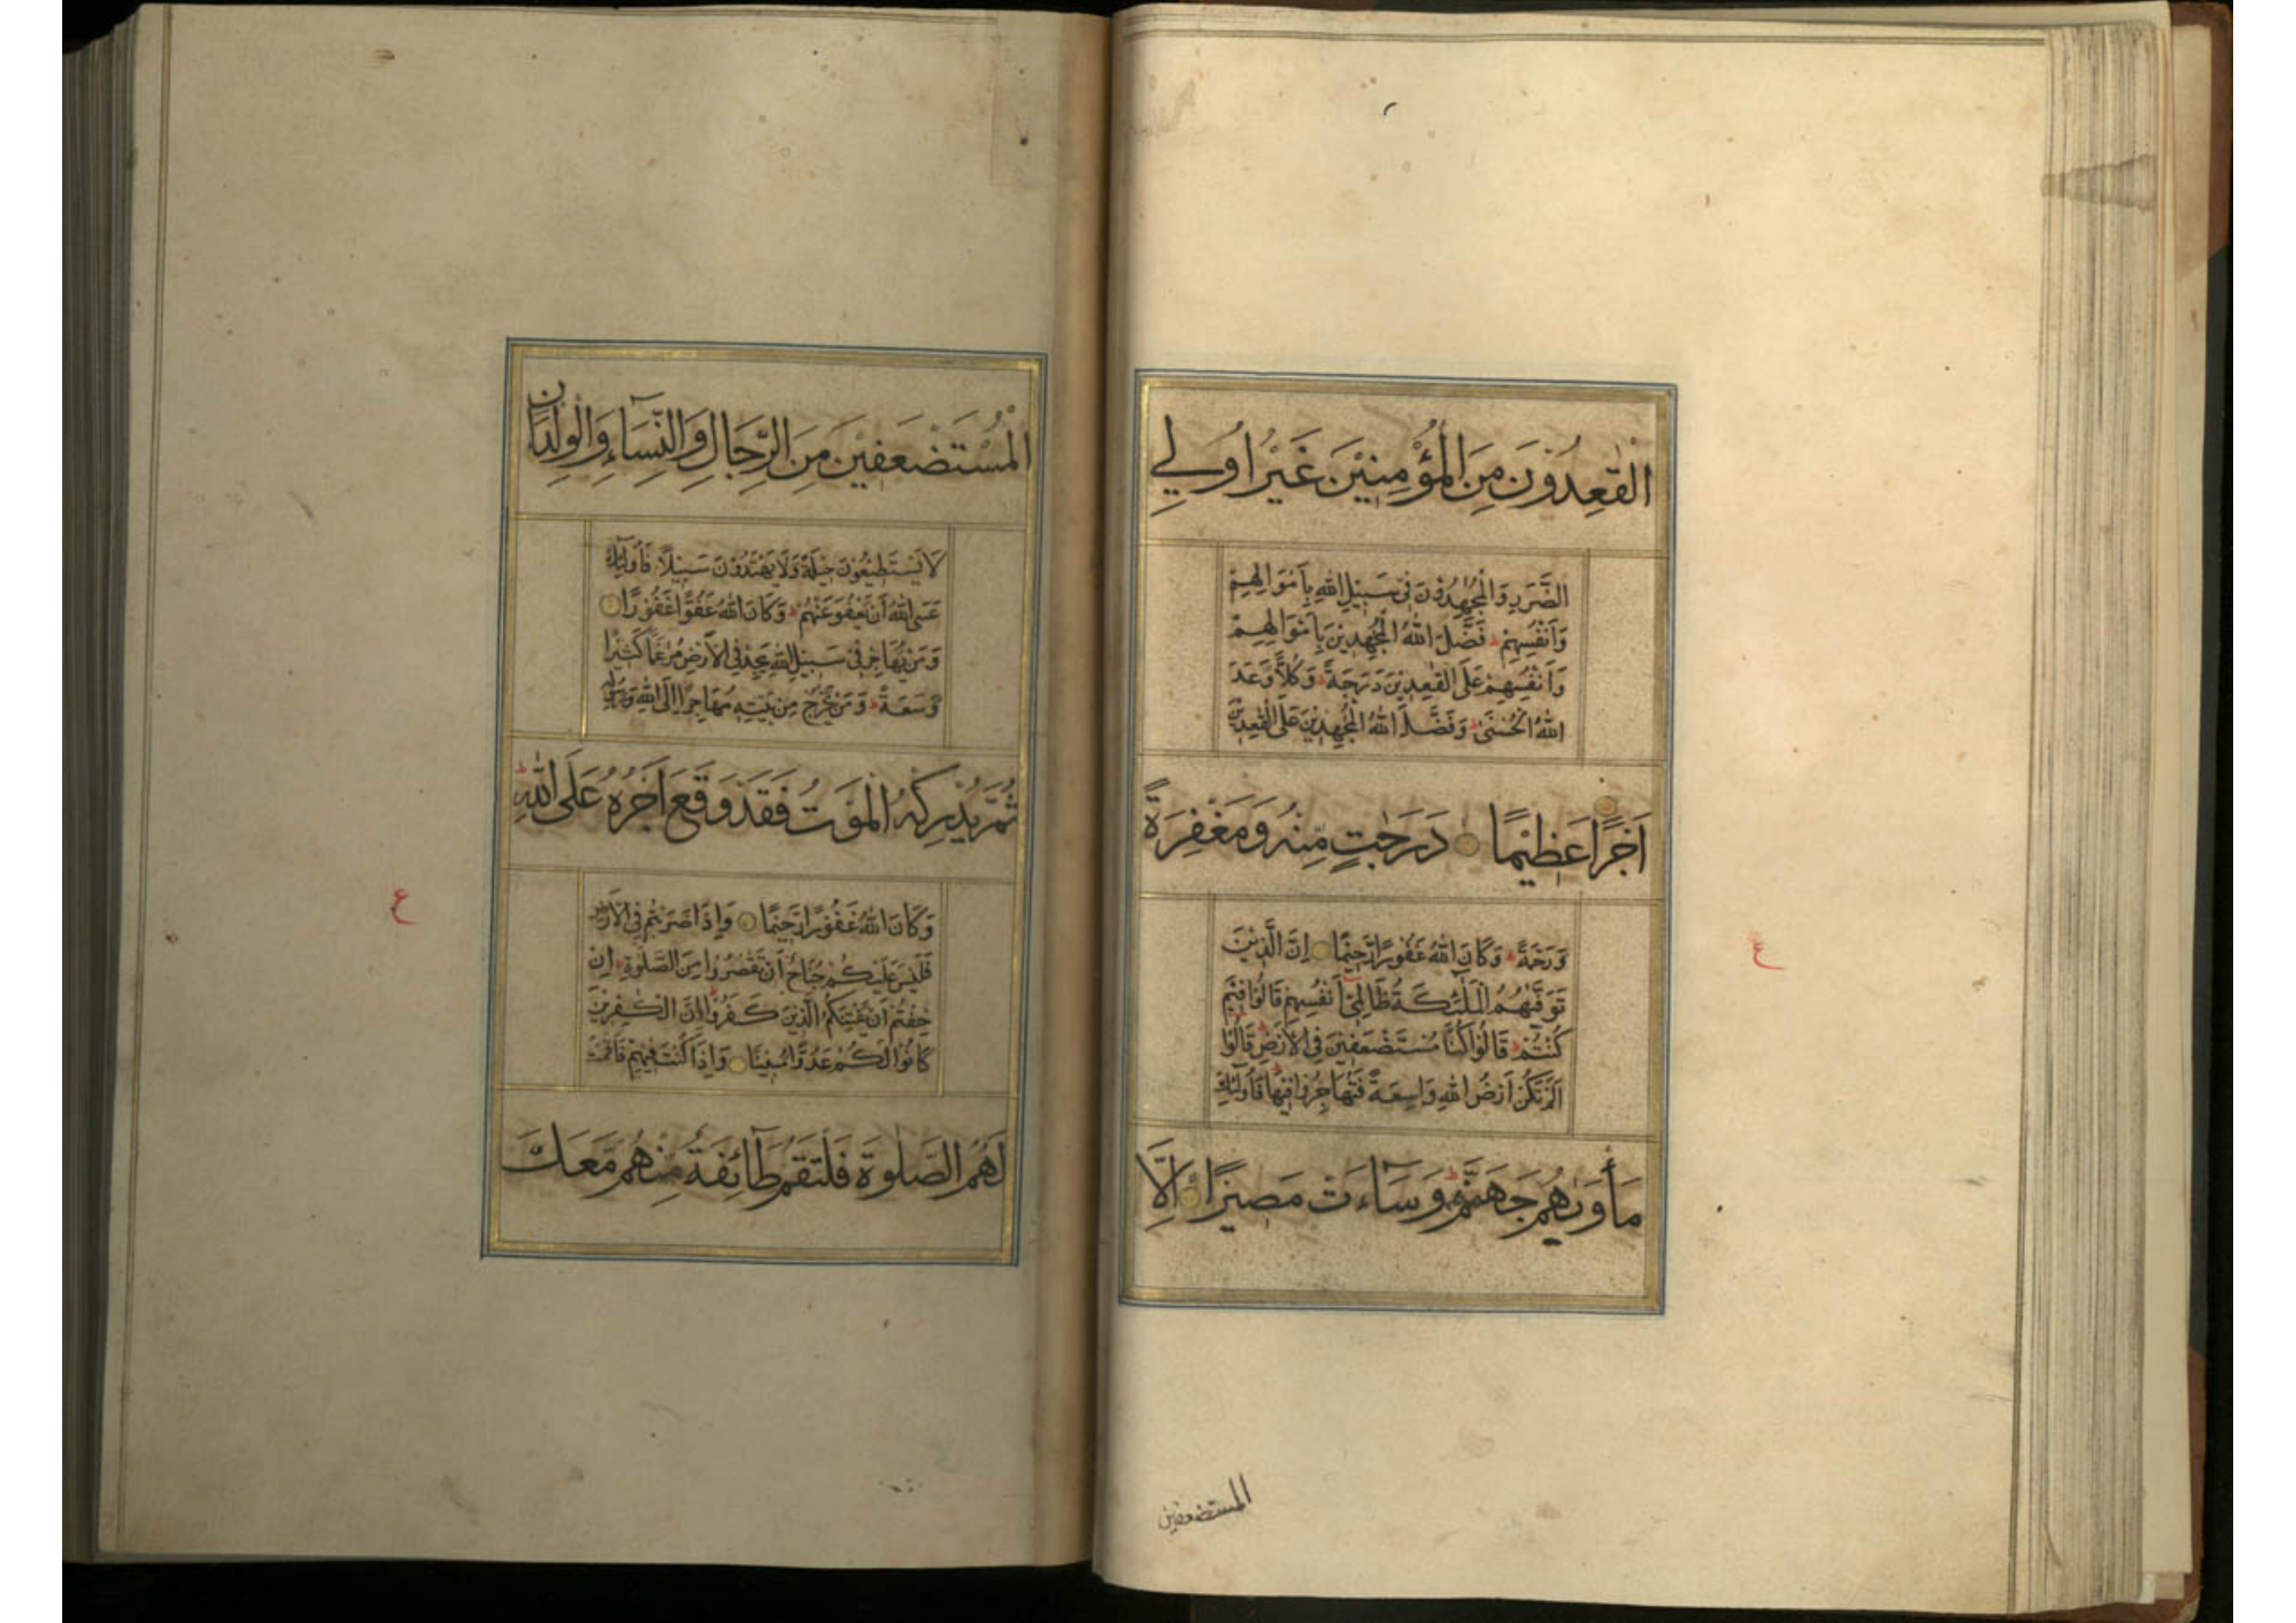 الْقٰعِدُوْنَ مِنَ الْمُؤْمِنِيْنَ غَيْرُ اُولِي
الضَّرَرِ وَالْمُجٰهِدُوْنَ فِيْ سَبِيْلِ اللّٰهِ بِاَمْوَالِهِمْ
وَاَنْفُسِهِمْ ط فَضَّلَ اللّٰهُ الْمُجٰهِدِيْنَ بِاَمْوَالِهِمْ
وَاَنْفُسِهِمْ عَلَى الْقٰعِدِيْنَ دَرَجَةً ط وَكُلًّا وَّعَدَ
اللّٰهُ الْحُسْنٰى ط وَفَضَّلَ اللّٰهُ الْمُجٰهِدِيْنَ عَلَى الْقٰعِدِيْنَ
اَجْرًا عَظِيْمًا دَرَجٰتٍ مِّنْهُ وَمَغْفِرَةً
وَّرَحْمَةً ط وَكَانَ اللّٰهُ غَفُوْرًا رَّحِيْمًا اِنَّ الَّذِيْنَ
تَوَفّٰىهُمُ الْمَلٰٓئِكَةُ ظَالِمِيْٓ اَنْفُسِهِمْ قَالُوْا فِيْمَ
كُنْتُمْ ط قَالُوْا كُنَّا مُسْتَضْعَفِيْنَ فِي الْاَرْضِ ط قَالُوْٓا
اَلَمْ تَكُنْ اَرْضُ اللّٰهِ وَاسِعَةً فَتُهَاجِرُوْا فِيْهَا ط فَاُولٰٓئِكَ
مَأْوٰىهُمْ جَهَنَّمُ ط وَسَآءَتْ مَصِيْرًا اِلَّا
ع
المستضعفين
الْمُسْتَضْعَفِيْنَ مِنَ الرِّجَالِ وَالنِّسَآءِ وَالْوِلْدَانِ
لَا يَسْتَطِيْعُوْنَ حِيْلَةً وَّلَا يَهْتَدُوْنَ سَبِيْلًا فَاُولٰٓئِكَ
عَسَى اللّٰهُ اَنْ يَّعْفُوَ عَنْهُمْ ط وَكَانَ اللّٰهُ عَفُوًّا غَفُوْرًا
وَمَنْ يُّهَاجِرْ فِيْ سَبِيْلِ اللّٰهِ يَجِدْ فِي الْاَرْضِ مُرٰغَمًا كَثِيْرًا
وَّسَعَةً ط وَمَنْ يَّخْرُجْ مِنْ بَيْتِهٖ مُهَاجِرًا اِلَى اللّٰهِ وَرَسُوْلِهٖ
ثُمَّ يُدْرِكْهُ الْمَوْتُ فَقَدْ وَقَعَ اَجْرُهُ عَلَى اللّٰهِ ط
وَكَانَ اللّٰهُ غَفُوْرًا رَّحِيْمًا وَاِذَا ضَرَبْتُمْ فِي الْاَرْضِ
فَلَيْسَ عَلَيْكُمْ جُنَاحٌ اَنْ تَقْصُرُوْا مِنَ الصَّلٰوةِ اِنْ
خِفْتُمْ اَنْ يَّفْتِنَكُمُ الَّذِيْنَ كَفَرُوْا ط اِنَّ الْكٰفِرِيْنَ
كَانُوْا لَكُمْ عَدُوًّا مُّبِيْنًا وَاِذَا كُنْتَ فِيْهِمْ فَاَقَمْتَ
لَهُمُ الصَّلٰوةَ فَلْتَقُمْ طَآئِفَةٌ مِّنْهُمْ مَّعَكَ
ع